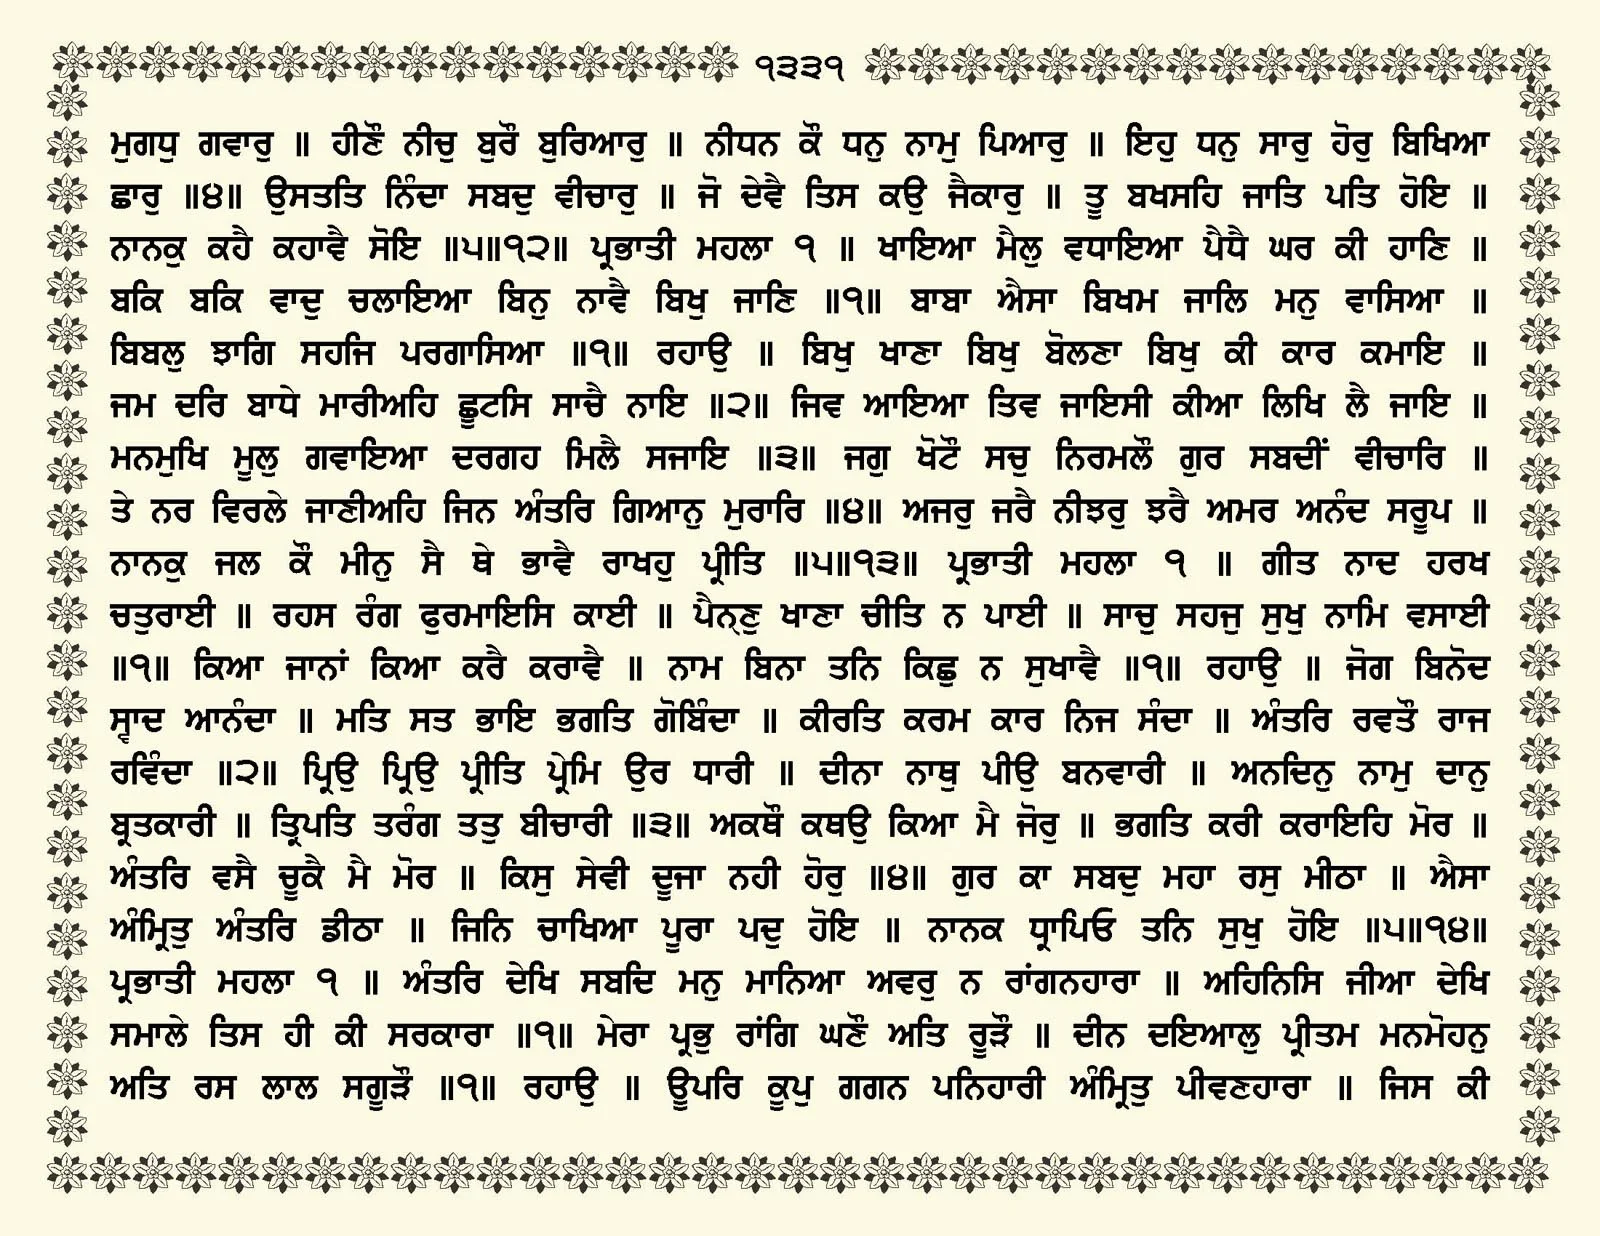 ੧੩੩੧
ਮੁਗਧੁ ਗਵਾਰੁ ॥ ਹੀਣੌ ਨੀਚੁ ਬੁਰੌ ਬੁਰਿਆਰੁ ॥ ਨੀਧਨ ਕੌ ਧਨੁ ਨਾਮੁ ਪਿਆਰੁ ॥ ਇਹੁ ਧਨੁ ਸਾਰੁ ਹੋਰੁ ਬਿਖਿਆ
ਛਾਰੁ ॥੪॥ ਉਸਤਤਿ ਨਿੰਦਾ ਸਬਦੁ ਵੀਚਾਰੁ ॥ ਜੋ ਦੇਵੈ ਤਿਸ ਕਉ ਜੈਕਾਰੁ ॥ ਤੂ ਬਖਸਹਿ ਜਾਤਿ ਪਤਿ ਹੋਇ ॥
ਨਾਨਕੁ ਕਹੈ ਕਹਾਵੈ ਸੋਇ ॥੫॥੧੨॥ ਪ੍ਰਭਾਤੀ ਮਹਲਾ ੧ ॥ ਖਾਇਆ ਮੈਲੁ ਵਧਾਇਆ ਪੈਧੈ ਘਰ ਕੀ ਹਾਣਿ ॥
ਬਕਿ ਬਕਿ ਵਾਦੁ ਚਲਾਇਆ ਬਿਨੁ ਨਾਵੈ ਬਿਖੁ ਜਾਣਿ ॥੧॥ ਬਾਬਾ ਐਸਾ ਬਿਖਮ ਜਾਲਿ ਮਨੁ ਵਾਸਿਆ ॥
ਬਿਬਲੁ ਝਾਗਿ ਸਹਜਿ ਪਰਗਾਸਿਆ ॥੧॥ ਰਹਾਉ ॥ ਬਿਖੁ ਖਾਣਾ ਬਿਖੁ ਬੋਲਣਾ ਬਿਖੁ ਕੀ ਕਾਰ ਕਮਾਇ ॥
ਜਮ ਦਰਿ ਬਾਧੇ ਮਾਰੀਅਹਿ ਛੂਟਸਿ ਸਾਚੈ ਨਾਇ ॥੨॥ ਜਿਵ ਆਇਆ ਤਿਵ ਜਾਇਸੀ ਕੀਆ ਲਿਖਿ ਲੈ ਜਾਇ ॥
ਮਨਮੁਖਿ ਮੂਲੁ ਗਵਾਇਆ ਦਰਗਹ ਮਿਲੈ ਸਜਾਇ ॥੩॥ ਜਗੁ ਖੋਟੌ ਸਚੁ ਨਿਰਮਲੌ ਗੁਰ ਸਬਦੀਂ ਵੀਚਾਰਿ ॥
ਤੇ ਨਰ ਵਿਰਲੇ ਜਾਣੀਅਹਿ ਜਿਨ ਅੰਤਰਿ ਗਿਆਨੁ ਮੁਰਾਰਿ ॥੪॥ ਅਜਰੁ ਜਰੈ ਨੀਝਰੁ ਝਰੈ ਅਮਰ ਅਨੰਦ ਸਰੂਪ ॥
ਨਾਨਕੁ ਜਲ ਕੌ ਮੀਨੁ ਸੈ ਥੇ ਭਾਵੈ ਰਾਖਹੁ ਪ੍ਰੀਤਿ ॥੫॥੧੩॥ ਪ੍ਰਭਾਤੀ ਮਹਲਾ ੧ ॥ ਗੀਤ ਨਾਦ ਹਰਖ
ਚਤੁਰਾਈ ॥ ਰਹਸ ਰੰਗ ਫੁਰਮਾਇਸਿ ਕਾਈ ॥ ਪੈਨ੍ਹਣੁ ਖਾਣਾ ਚੀਤਿ ਨ ਪਾਈ ॥ ਸਾਚੁ ਸਹਜੁ ਸੁਖੁ ਨਾਮਿ ਵਸਾਈ
॥੧॥ ਕਿਆ ਜਾਨਾਂ ਕਿਆ ਕਰੈ ਕਰਾਵੈ ॥ ਨਾਮ ਬਿਨਾ ਤਨਿ ਕਿਛੁ ਨ ਸੁਖਾਵੈ ॥੧॥ ਰਹਾਉ ॥ ਜੋਗ ਬਿਨੋਦ
ਸ੍ਵਾਦ ਆਨੰਦਾ ॥ ਮਤਿ ਸਤ ਭਾਇ ਭਗਤਿ ਗੋਬਿੰਦਾ ॥ ਕੀਰਤਿ ਕਰਮ ਕਾਰ ਨਿਜ ਸੰਦਾ ॥ ਅੰਤਰਿ ਰਵਤੌ ਰਾਜ
ਰਵਿੰਦਾ ॥੨॥ ਪ੍ਰਿਉ ਪ੍ਰਿਉ ਪ੍ਰੀਤਿ ਪ੍ਰੇਮਿ ਉਰ ਧਾਰੀ ॥ ਦੀਨਾ ਨਾਥੁ ਪੀਉ ਬਨਵਾਰੀ ॥ ਅਨਦਿਨੁ ਨਾਮੁ ਦਾਨੁ
ਬ੍ਰਤਕਾਰੀ ॥ ਤ੍ਰਿਪਤਿ ਤਰੰਗ ਤਤੁ ਬੀਚਾਰੀ ॥੩॥ ਅਕਥੌ ਕਥਉ ਕਿਆ ਮੈ ਜੋਰੁ ॥ ਭਗਤਿ ਕਰੀ ਕਰਾਇਹਿ ਮੋਰ ॥
ਅੰਤਰਿ ਵਸੈ ਚੂਕੈ ਮੈ ਮੋਰ ॥ ਕਿਸੁ ਸੇਵੀ ਦੂਜਾ ਨਹੀ ਹੋਰੁ ॥੪॥ ਗੁਰ ਕਾ ਸਬਦੁ ਮਹਾ ਰਸੁ ਮੀਠਾ ॥ ਐਸਾ
ਅੰਮ੍ਰਿਤੁ ਅੰਤਰਿ ਡੀਠਾ ॥ ਜਿਨਿ ਚਾਖਿਆ ਪੂਰਾ ਪਦੁ ਹੋਇ ॥ ਨਾਨਕ ਧ੍ਰਾਪਿਓ ਤਨਿ ਸੁਖੁ ਹੋਇ ॥੫॥੧੪॥
ਪ੍ਰਭਾਤੀ ਮਹਲਾ ੧ ॥ ਅੰਤਰਿ ਦੇਖਿ ਸਬਦਿ ਮਨੁ ਮਾਨਿਆ ਅਵਰੁ ਨ ਰਾਂਗਨਹਾਰਾ ॥ ਅਹਿਨਿਸਿ ਜੀਆ ਦੇਖਿ
ਸਮਾਲੇ ਤਿਸ ਹੀ ਕੀ ਸਰਕਾਰਾ ॥੧॥ ਮੇਰਾ ਪ੍ਰਭੁ ਰਾਂਗਿ ਘਣੌ ਅਤਿ ਰੂੜੌ ॥ ਦੀਨ ਦਇਆਲੁ ਪ੍ਰੀਤਮ ਮਨਮੋਹਨੁ
ਅਤਿ ਰਸ ਲਾਲ ਸਗੂੜੌ ॥੧॥ ਰਹਾਉ ॥ ਊਪਰਿ ਕੂਪੁ ਗਗਨ ਪਨਿਹਾਰੀ ਅੰਮ੍ਰਿਤੁ ਪੀਵਣਹਾਰਾ ॥ ਜਿਸ ਕੀ